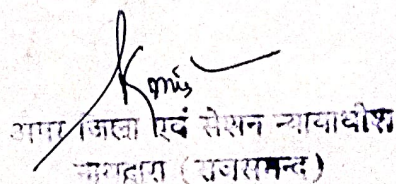 अपर जिला एवं सेशन न्यायाधीश
नाथद्वारा (राजसमन्द)